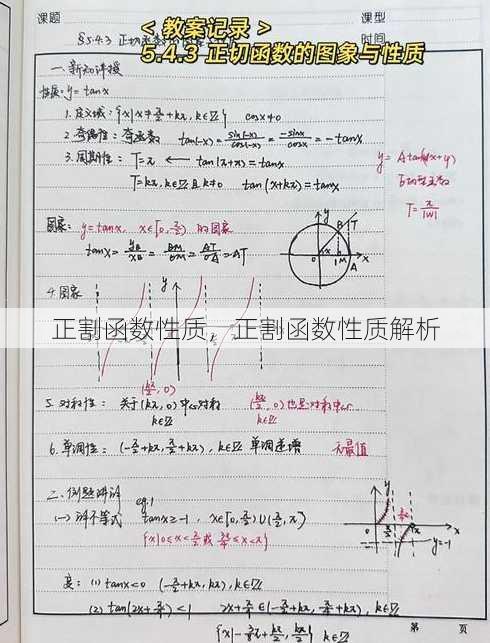 课题
课型
§5.4.3 正切函数的图象与性质
时间
< 教案记录 >
5.4.3 正切函数的图象与性质
一、新知讲授
性质: y = tanx
1. 定义域: {x|x≠π/2+kπ, k∈Z} cosx≠0
2. 奇偶性: 奇函数 tan(-x)= sin(-x)/cos(-x) = -sinx/cosx = -tanx
3. 周期性: T=π ← tan(π+x)=tanx
T=kπ, k∈Z且k≠0 tan(x+kπ)=tanx
y= Atan(ωx+φ)
T=π/|ω|
图象: y=tanx, x∈[0,π/2) 的图象
tanx= yB/xB = BM/OM = AT/OA = AT
y
B
T
O
x
1
M
A
x
4. 图象
y
正割函数性质，正割函数性质解析
(kπ/2, 0)
5. 对称性: 关于(kπ, 0) 中心对称
k∈Z
(kπ/2, 0) 也是对称中心
k∈Z
6. 单调性: (-π/2+kπ, π/2+kπ), k∈Z 单调递增
无最值
二、例题讲评
(一) 解不等式
eg.1
tanx≥-1, x∈[0,π/2)∪(π/2,π)
{x|0≤x<π/2 或 3π/4≤x<π}
y
0
x
y=-1
(1) tanx<0 (-π/2+kπ, kπ), k∈Z
(2) tan(2x+π/4)<1 2x+π/4∈(-π/2+kπ, π/4+kπ), k∈Z
第 页